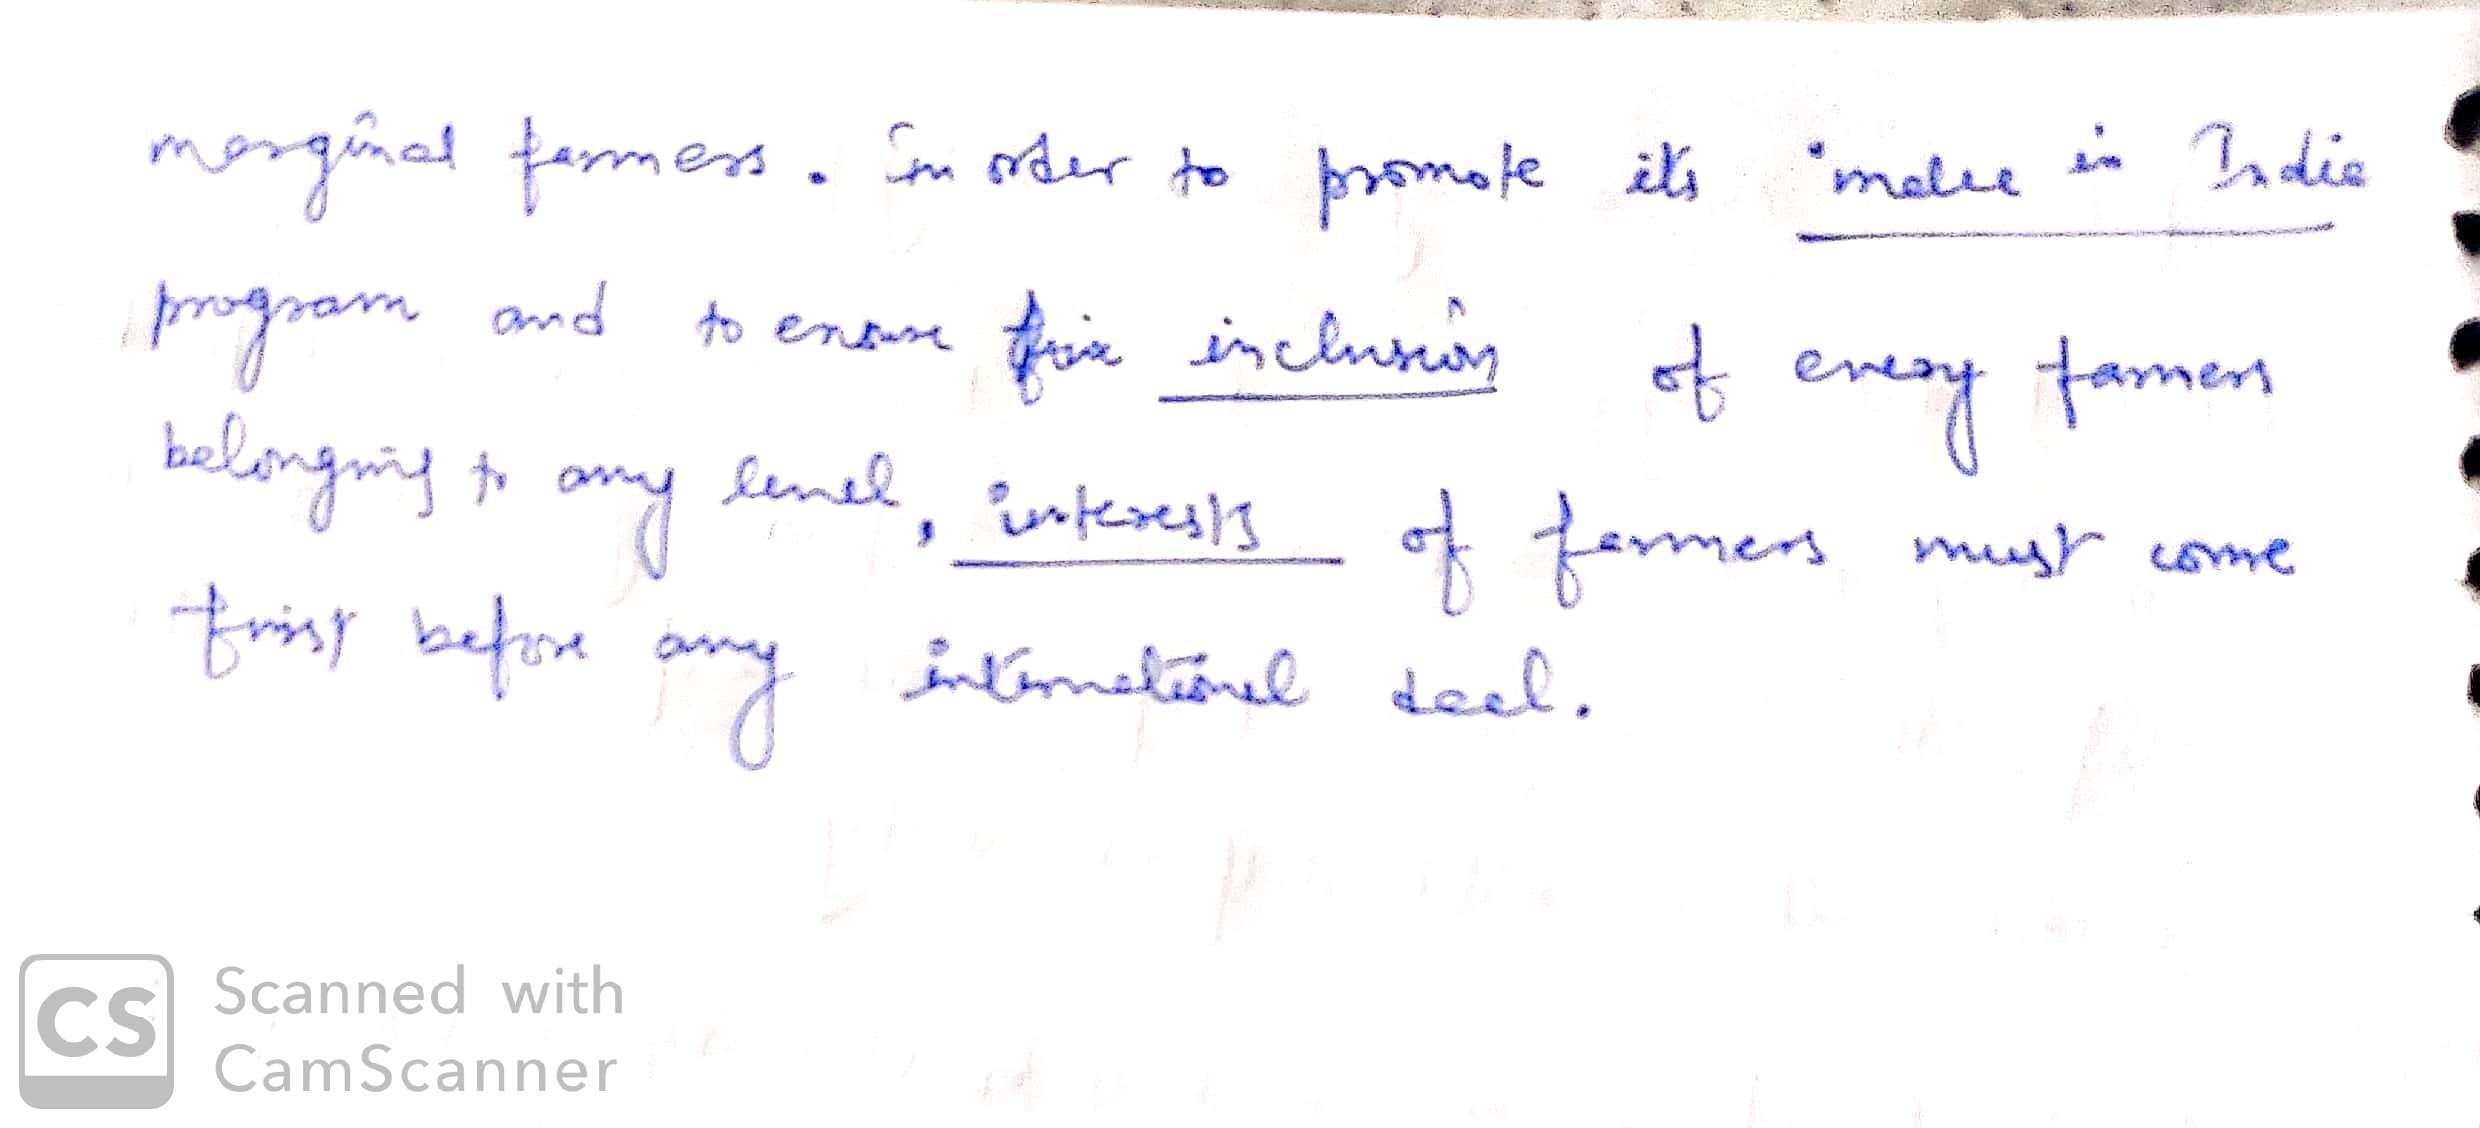 marginal farmers. in order to promote its 'make in India
program and to ensure inclusion of every farmers
belonging to any level, interests of farmers must come
first before any international deal.
CS Scanned with
CamScanner